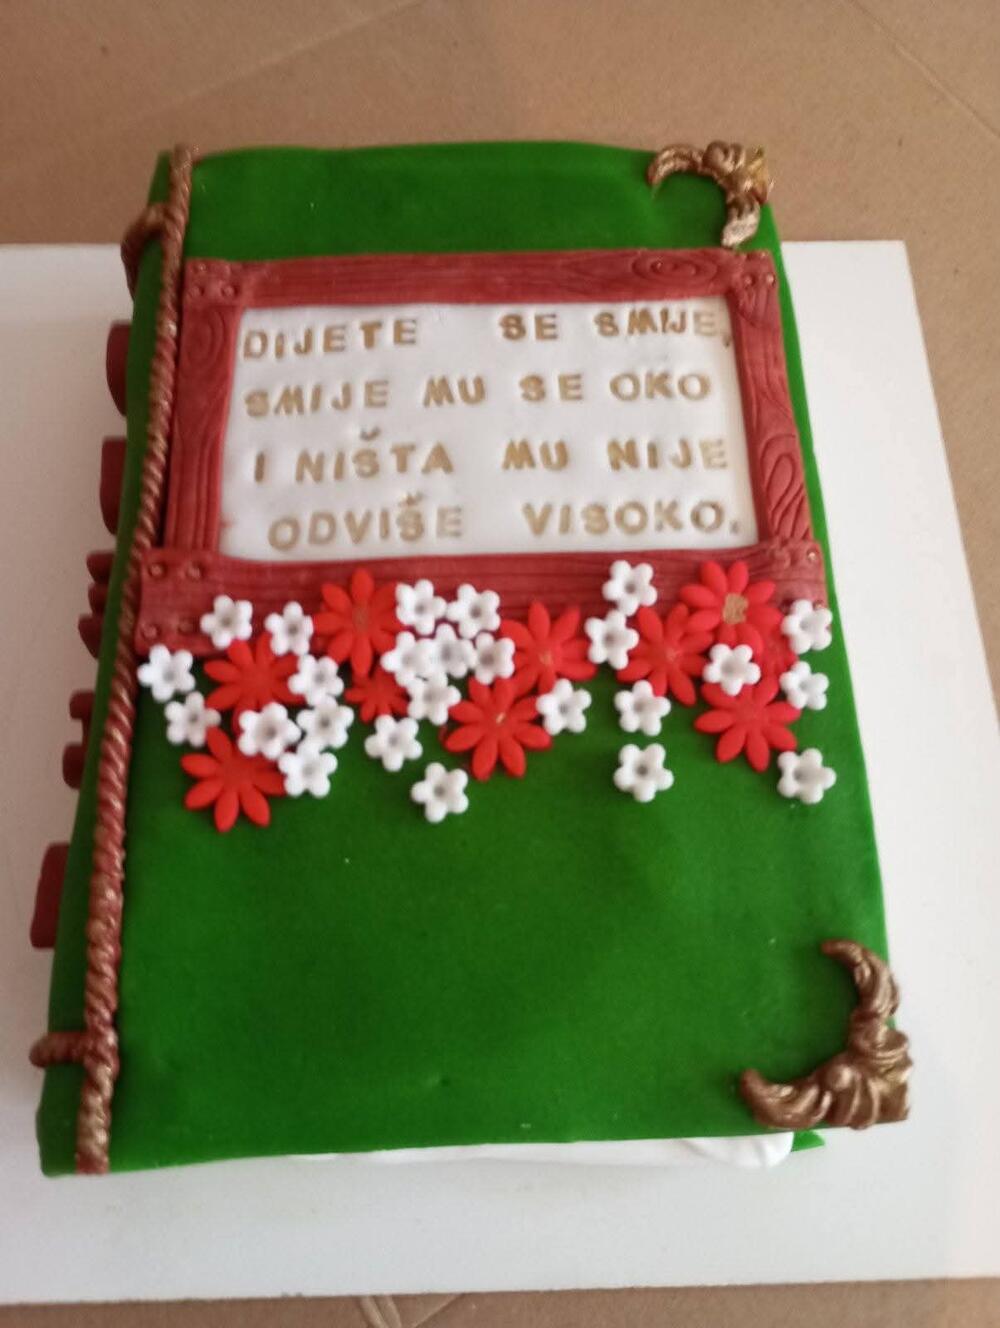 DIJETE SE SMIJE,
SMIJE MU SE OKO
I NIŠTA MU NIJE
ODVIŠE VISOKO.